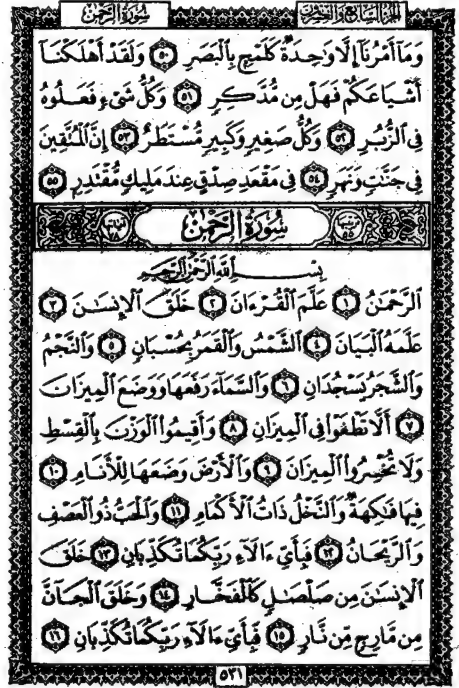 سُورَةُ الرَّحْمَٰن الجُزْءُ السَّابِعُ وَالعِشْرُونَ
وَمَآ أَمْرُنَآ إِلَّا وَٰحِدَةٌ كَلَمْحٍۭ بِالْبَصَرِ ٥٠ وَلَقَدْ أَهْلَكْنَآ
أَشْيَاعَكُمْ فَهَلْ مِن مُّدَّكِرٍ ٥١ وَكُلُّ شَىْءٍ فَعَلُوهُ
فِى الزُّبُرِ ٥٢ وَكُلُّ صَغِيرٍ وَكَبِيرٍ مُّسْتَطَرٌ ٥٣ إِنَّ الْمُتَّقِينَ
فِى جَنَّٰتٍ وَنَهَرٍ ٥٤ فِى مَقْعَدِ صِدْقٍ عِندَ مَلِيكٍ مُّقْتَدِرٍۭ ٥٥
سُورَةُ الرَّحْمَٰن
بِسْمِ اللَّهِ الرَّحْمَٰنِ الرَّحِيمِ
الرَّحْمَٰنُ ١ عَلَّمَ الْقُرْءَانَ ٢ خَلَقَ الْإِنسَٰنَ ٣
عَلَّمَهُ الْبَيَانَ ٤ الشَّمْسُ وَالْقَمَرُ بِحُسْبَانٍ ٥ وَالنَّجْمُ
وَالشَّجَرُ يَسْجُدَانِ ٦ وَالسَّمَآءَ رَفَعَهَا وَوَضَعَ الْمِيزَانَ
٧ أَلَّا تَطْغَوْا فِى الْمِيزَانِ ٨ وَأَقِيمُوا الْوَزْنَ بِالْقِسْطِ
وَلَا تُخْسِرُوا الْمِيزَانَ ٩ وَالْأَرْضَ وَضَعَهَا لِلْأَنَامِ ١٠
فِيهَا فَٰكِهَةٌ وَالنَّخْلُ ذَاتُ الْأَكْمَامِ ١١ وَالْحَبُّ ذُو الْعَصْفِ
وَالرَّيْحَانُ ١٢ فَبِأَىِّ ءَالَآءِ رَبِّكُمَا تُكَذِّبَانِ ١٣ خَلَقَ
الْإِنسَٰنَ مِن صَلْصَٰلٍ كَالْفَخَّارِ ١٤ وَخَلَقَ الْجَآنَّ
مِن مَّارِجٍ مِّن نَّارٍ ١٥ فَبِأَىِّ ءَالَآءِ رَبِّكُمَا تُكَذِّبَانِ ١٦
٥٣١